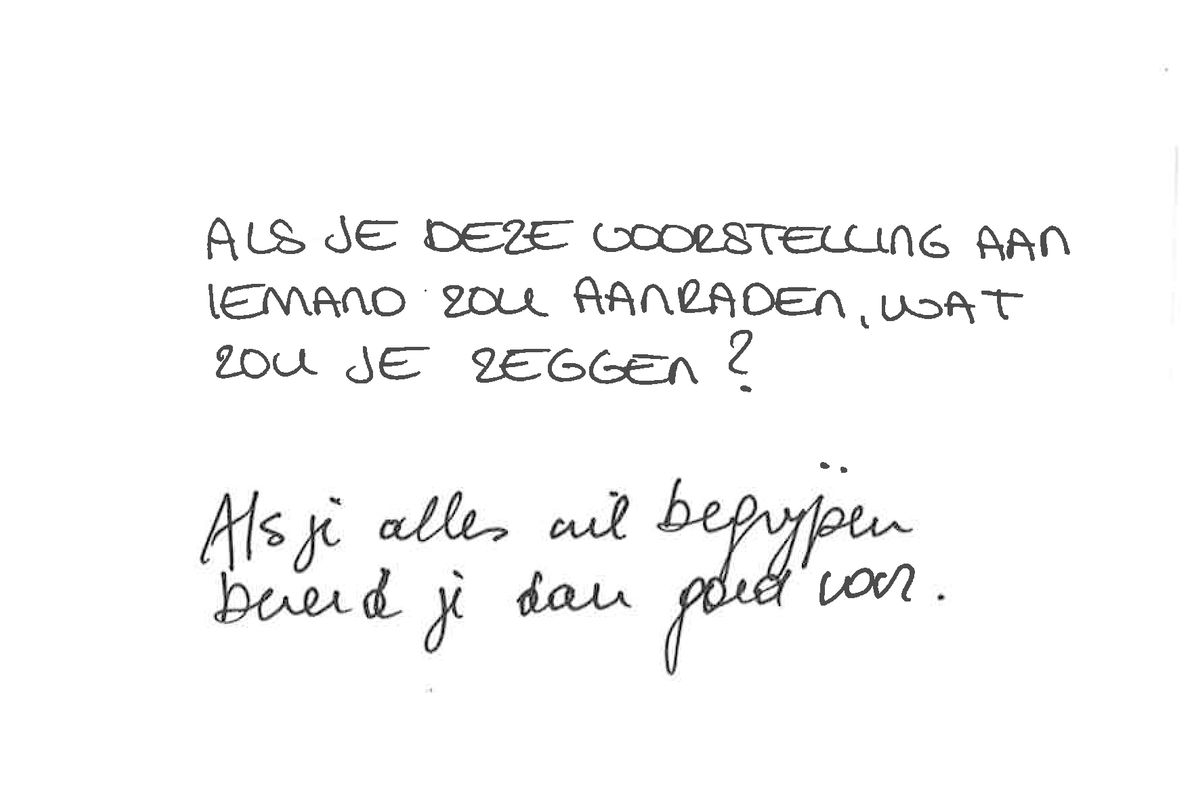 ALS JE DEZE VOORSTELLING AAN
IEMAND ZOU AANRADEN, WAT
ZOU JE ZEGGEN?
Als je alles wil begrijpen
bereid je dan goed voor.